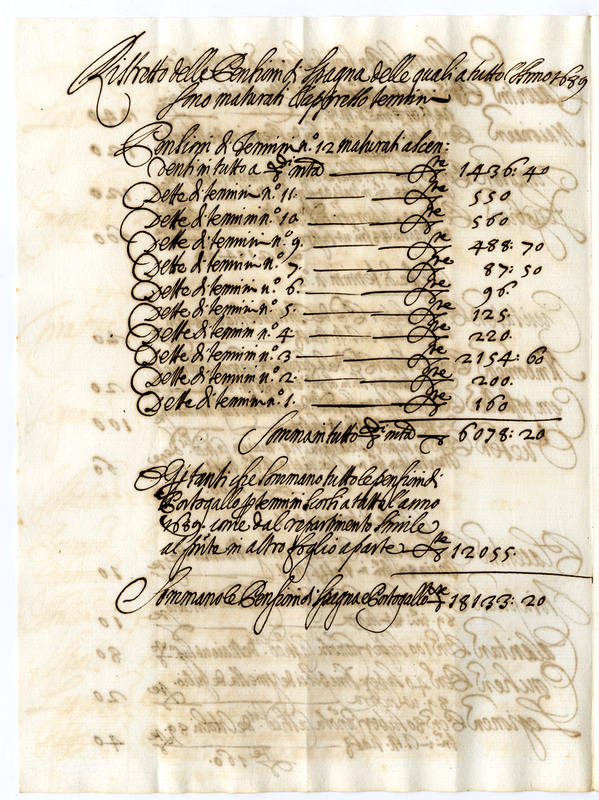 Ristretto delle Pensioni di Spagna delle quali a tutto l'Anno 1689
sono maturati l'appresso termini
Pensioni di Termini n.º 12 maturati ascen:
denti in tutto a mta 1436: 40
Dette di termini n.º 11. 550
Dette di termini n.º 10 560
Dette di termini n.º 9. 488: 70
Dette di termini n.º 7. 87: 50
Dette di termini n.º 6. 96.
Dette di termini n.º 5. 125.
Dette di termini n.º 4. 220.
Dette di termini n.º 3 2154: 60
Dette di termini n.º 2. 200.
Dette di termini n.º 1. 160
Sommano in tutto mta 6078: 20
tanti che sommano tutte le pensioni di
Portogallo termini scorsi a tutto l'anno
1689. come dal repartimento simile
al pnte in altro foglio a parte 12055.
Sommano le Pensioni di Spagna e Portogallo 18133: 20